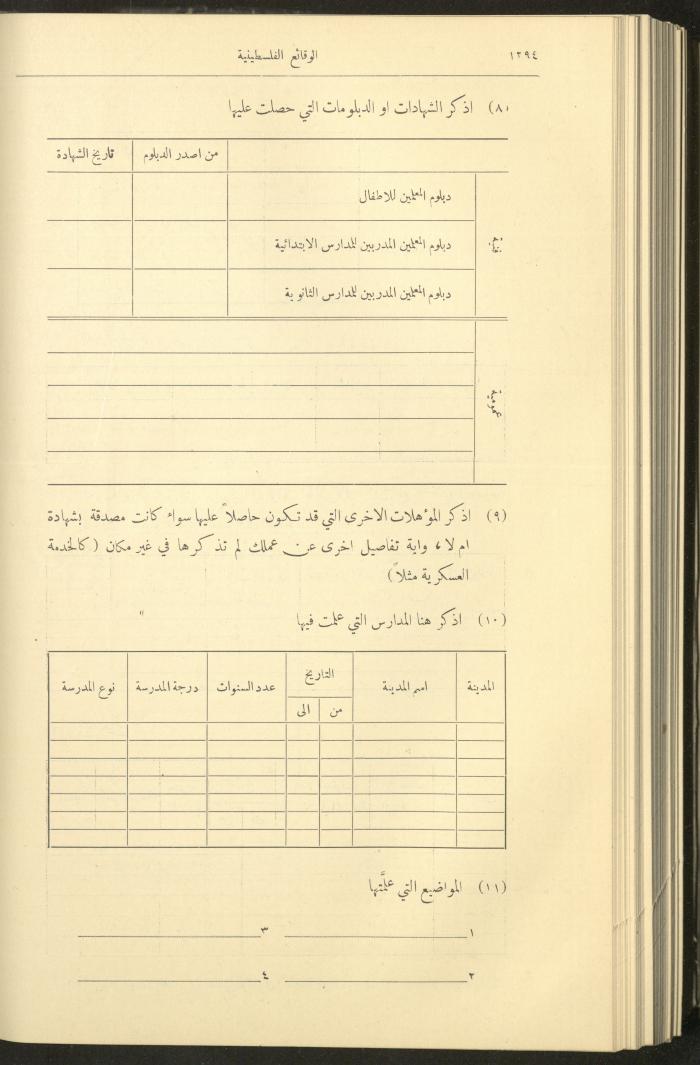 ١٢٩٤ الوقائع الفلسطينية
(٨) اذكر الشهادات او الدبلومات التي حصلت عليها
من اصدر الدبلوم تاريخ الشهادة
دبلوم المعلمين للاطفال
دبلوم المعلمين المدربين للمدارس الابتدائية
دبلوم المعلمين المدربين للمدارس الثانوية
عمومية
(٩) اذكر المؤهلات الاخرى التي قد تكون حاصلاً عليها سواء كانت مصدقة بشهادة
ام لا، واية تفاصيل اخرى عن عملك لم تذكرها في غير مكان (كالخدمة
العسكرية مثلاً)
(١٠) اذكر هنا المدارس التي علمت فيها
المدينة اسم المدينة التاريخ عدد السنوات درجة المدرسة نوع المدرسة
من الى
(١١) المواضيع التي علَّمتها
١ ٣
٢ ٤